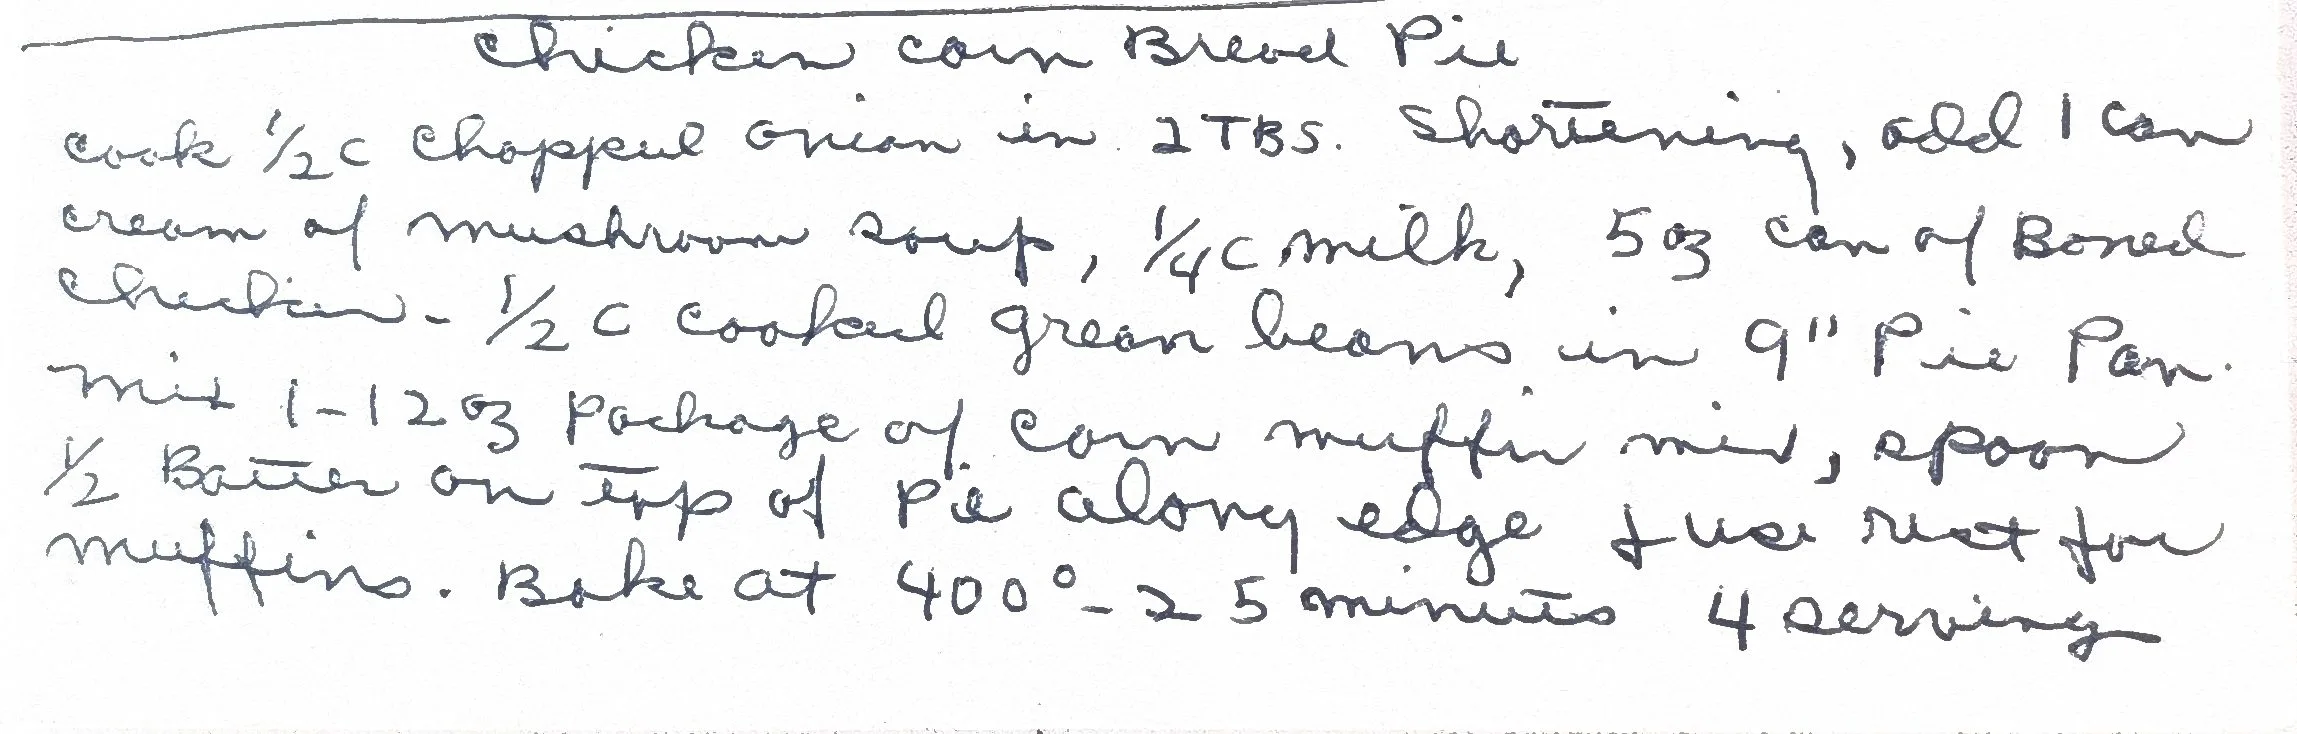 Chicken Corn Bread Pie
Cook 1/2 C Chopped onion in 2 TBS. Shortening, add 1 can
cream of mushroom soup, 1/4 C milk, 5 oz can of Boned
Chicken - 1/2 C cooked green beans in 9" Pie Pan.
Mix 1-12 oz Package of Corn muffin mix, spoon
1/2 Batter on top of Pie along edge & use rest for
muffins. Bake at 400° - 25 minutes 4 serving